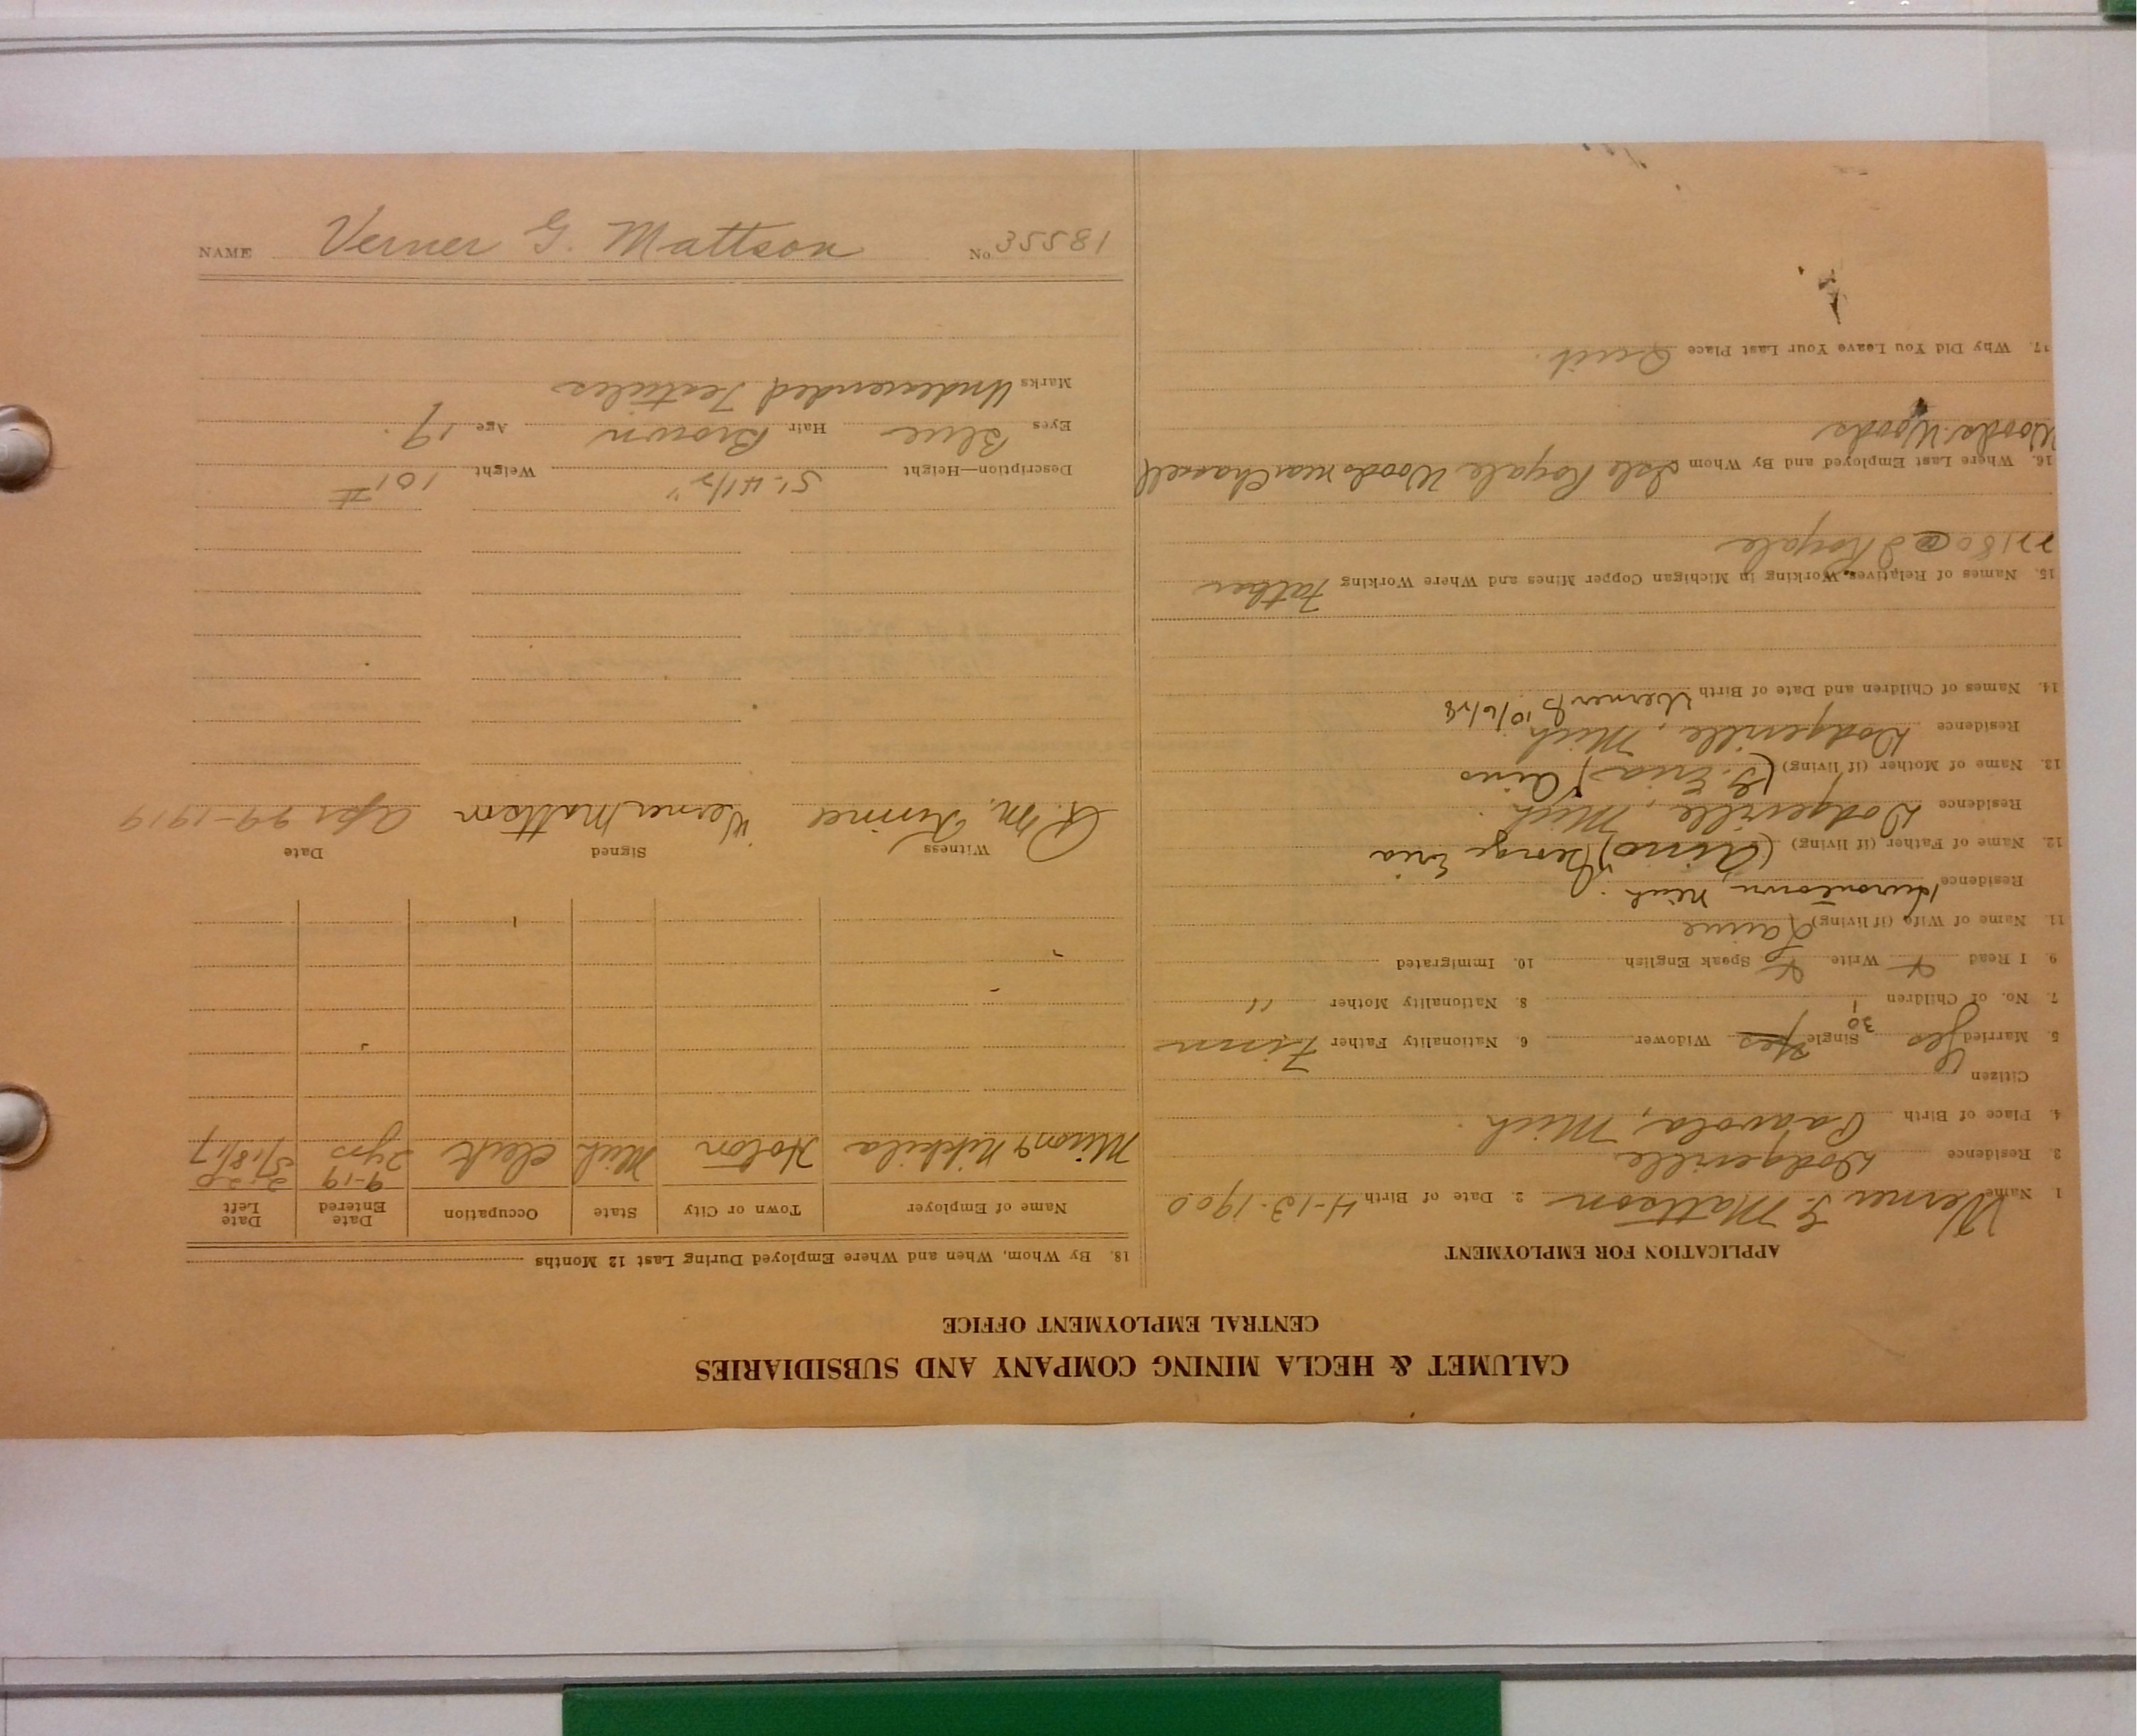 CALUMET & HECLA MINING COMPANY AND SUBSIDIARIES
CENTRAL EMPLOYMENT OFFICE
APPLICATION FOR EMPLOYMENT
1 Name Verner G Mattson 2. Date of Birth 4-13-1900
3. Residence Dodgeville
4. Place of Birth Paavola, Mich.
Citizen
5. Married Yes 30 Single Yes Widower 6. Nationality Father Finn
7. No. of Children 1 8. Nationality Mother "
9. I Read Write Speak English 10. Immigrated
11. Name of Wife (if living) Laine
Residence Hurontown Mich.
12. Name of Father (if living) (Aino) George Eria
Residence Dodgeville, Mich.
13. Name of Mother (if living) (G. Eria) Aino
Residence Dodgeville, Mich.
14. Names of Children and Date of Birth Verner 10/6/28
15. Names of Relatives Working in Michigan Copper Mines and Where Working Father
Royale
16. Where Last Employed and By Whom Isle Royale Woods near Chassell
Woods. Woods
17. Why Did You Leave Your Last Place Quit.
18. By Whom, When and Where Employed During Last 12 Months
Name of Employer Town or City State Occupation Date Entered Date Left
9-19 2-20
Nikkila Hoton Mich Clerk 2 yrs 3/18/17
Witness Signed Date
R. M. Verner Mattson Apr 29-1919
Description—Height 5'-4 1/2" Weight 101 #
Eyes Blue Hair Brown Age 19.
Marks Undescended Testicles
NAME Verner G. Mattson No. 18553